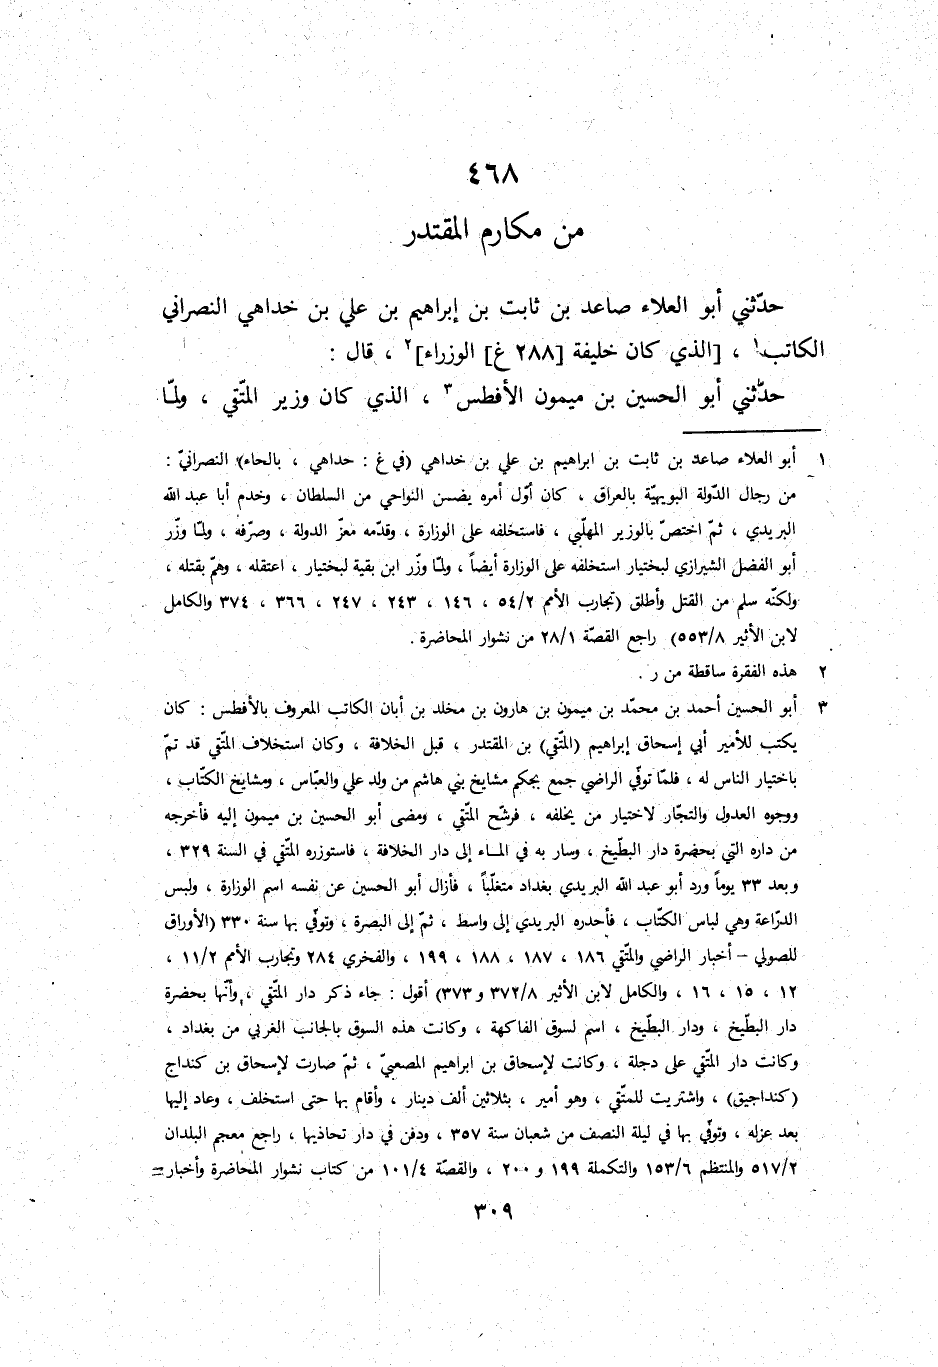 ٤٦٨
من مكارم المقتدر
حدّثني أبو العلاء صاعد بن ثابت بن إبراهيم بن علي بن خداهي النصراني
الكاتب١ ، [الذي كان خليفة [٢٨٨ غ] الوزراء]٢ ، قال :
حدّثني أبو الحسين بن ميمون الأفطس٣ ، الذي كان وزير المتّقي ، ولمّا
١ أبو العلاء صاعد بن ثابت بن ابراهيم بن علي بن خداهي (في غ : حداهي ، بالحاء) النصرانيّ :
من رجال الدّولة البويهيّة بالعراق ، كان أوّل أمره يضمن النواحي من السلطان ، وخدم أبا عبد الله
البريدي ، ثمّ اختصّ بالوزير المهلّبي ، فاستخلفه على الوزارة ، وقدّمه معزّ الدولة ، وصرّفه ، ولمّا وزّر
أبو الفضل الشيرازي لبختيار استخلفه على الوزارة أيضاً ، ولمّا وزّر ابن بقية لبختيار ، اعتقله ، وهمّ بقتله ،
ولكنّه سلم من القتل وأطلق (تجارب الأمم ٥٤/٢ ، ١٤٦ ، ٢٤٣ ، ٢٤٧ ، ٣٦٦ ، ٣٧٤ والكامل
لابن الأثير ٥٥٣/٨) راجع القصّة ٢٨/١ من نشوار المحاضرة .
٢ هذه الفقرة ساقطة من ر .
٣ أبو الحسين أحمد بن محمّد بن ميمون بن هارون بن مخلد بن أبان الكاتب المعروف بالأفطس : كان
يكتب للأمير أبي إسحاق إبراهيم (المتّقي) بن المقتدر ، قبل الخلافة ، وكان استخلاف المتّقي قد تمّ
باختيار الناس له ، فلمّا توفّي الراضي جمع بجكم مشايخ بني هاشم من ولد علي والعبّاس ، ومشايخ الكتّاب ،
ووجوه العدول والتجّار لاختيار من يخلفه ، فرشّح المتّقي ، ومضى أبو الحسين بن ميمون إليه فأخرجه
من داره التي بحضرة دار البطّيخ ، وسار به في الماء إلى دار الخلافة ، فاستوزره المتّقي في السنة ٣٢٩ ،
وبعد ٣٣ يوماً ورد أبو عبد الله البريدي بغداد متغلّباً ، فأزال أبو الحسين عن نفسه اسم الوزارة ، ولبس
الدرّاعة وهي لباس الكتّاب ، فأحدره البريدي إلى واسط ، ثمّ إلى البصرة ، وتوفّي بها سنة ٣٣٠ (الأوراق
للصولي – أخبار الراضي والمتّقي ١٨٦ ، ١٨٧ ، ١٨٨ ، ١٩٩ ، والفخري ٢٨٤ وتجارب الأمم ١١/٢ ،
١٢ ، ١٥ ، ١٦ ، والكامل لابن الأثير ٣٧٢/٨ و ٣٧٣) أقول : جاء ذكر دار المتّقي ، وأنّها بحضرة
دار البطّيخ ، ودار البطّيخ ، اسم لسوق الفاكهة ، وكانت هذه السوق بالجانب الغربي من بغداد ،
وكانت دار المتّقي على دجلة ، وكانت لإسحاق بن ابراهيم المصعبيّ ، ثمّ صارت لإسحاق بن كنداج
(كنداجيق) ، واشتريت للمتّقي ، وهو أمير ، بثلاثين ألف دينار ، وأقام بها حتى استخلف ، وعاد إليها
بعد عزله ، وتوفّي بها في ليلة النصف من شعبان سنة ٣٥٧ ، ودفن في دار تحاذيها ، راجع معجم البلدان
٥١٧/٢ والمنتظم ١٥٣/٦ والتكملة ١٩٩ و ٢٠٠ ، والقصّة ١٠١/٤ من كتاب نشوار المحاضرة وأخبار=
٣٠٩